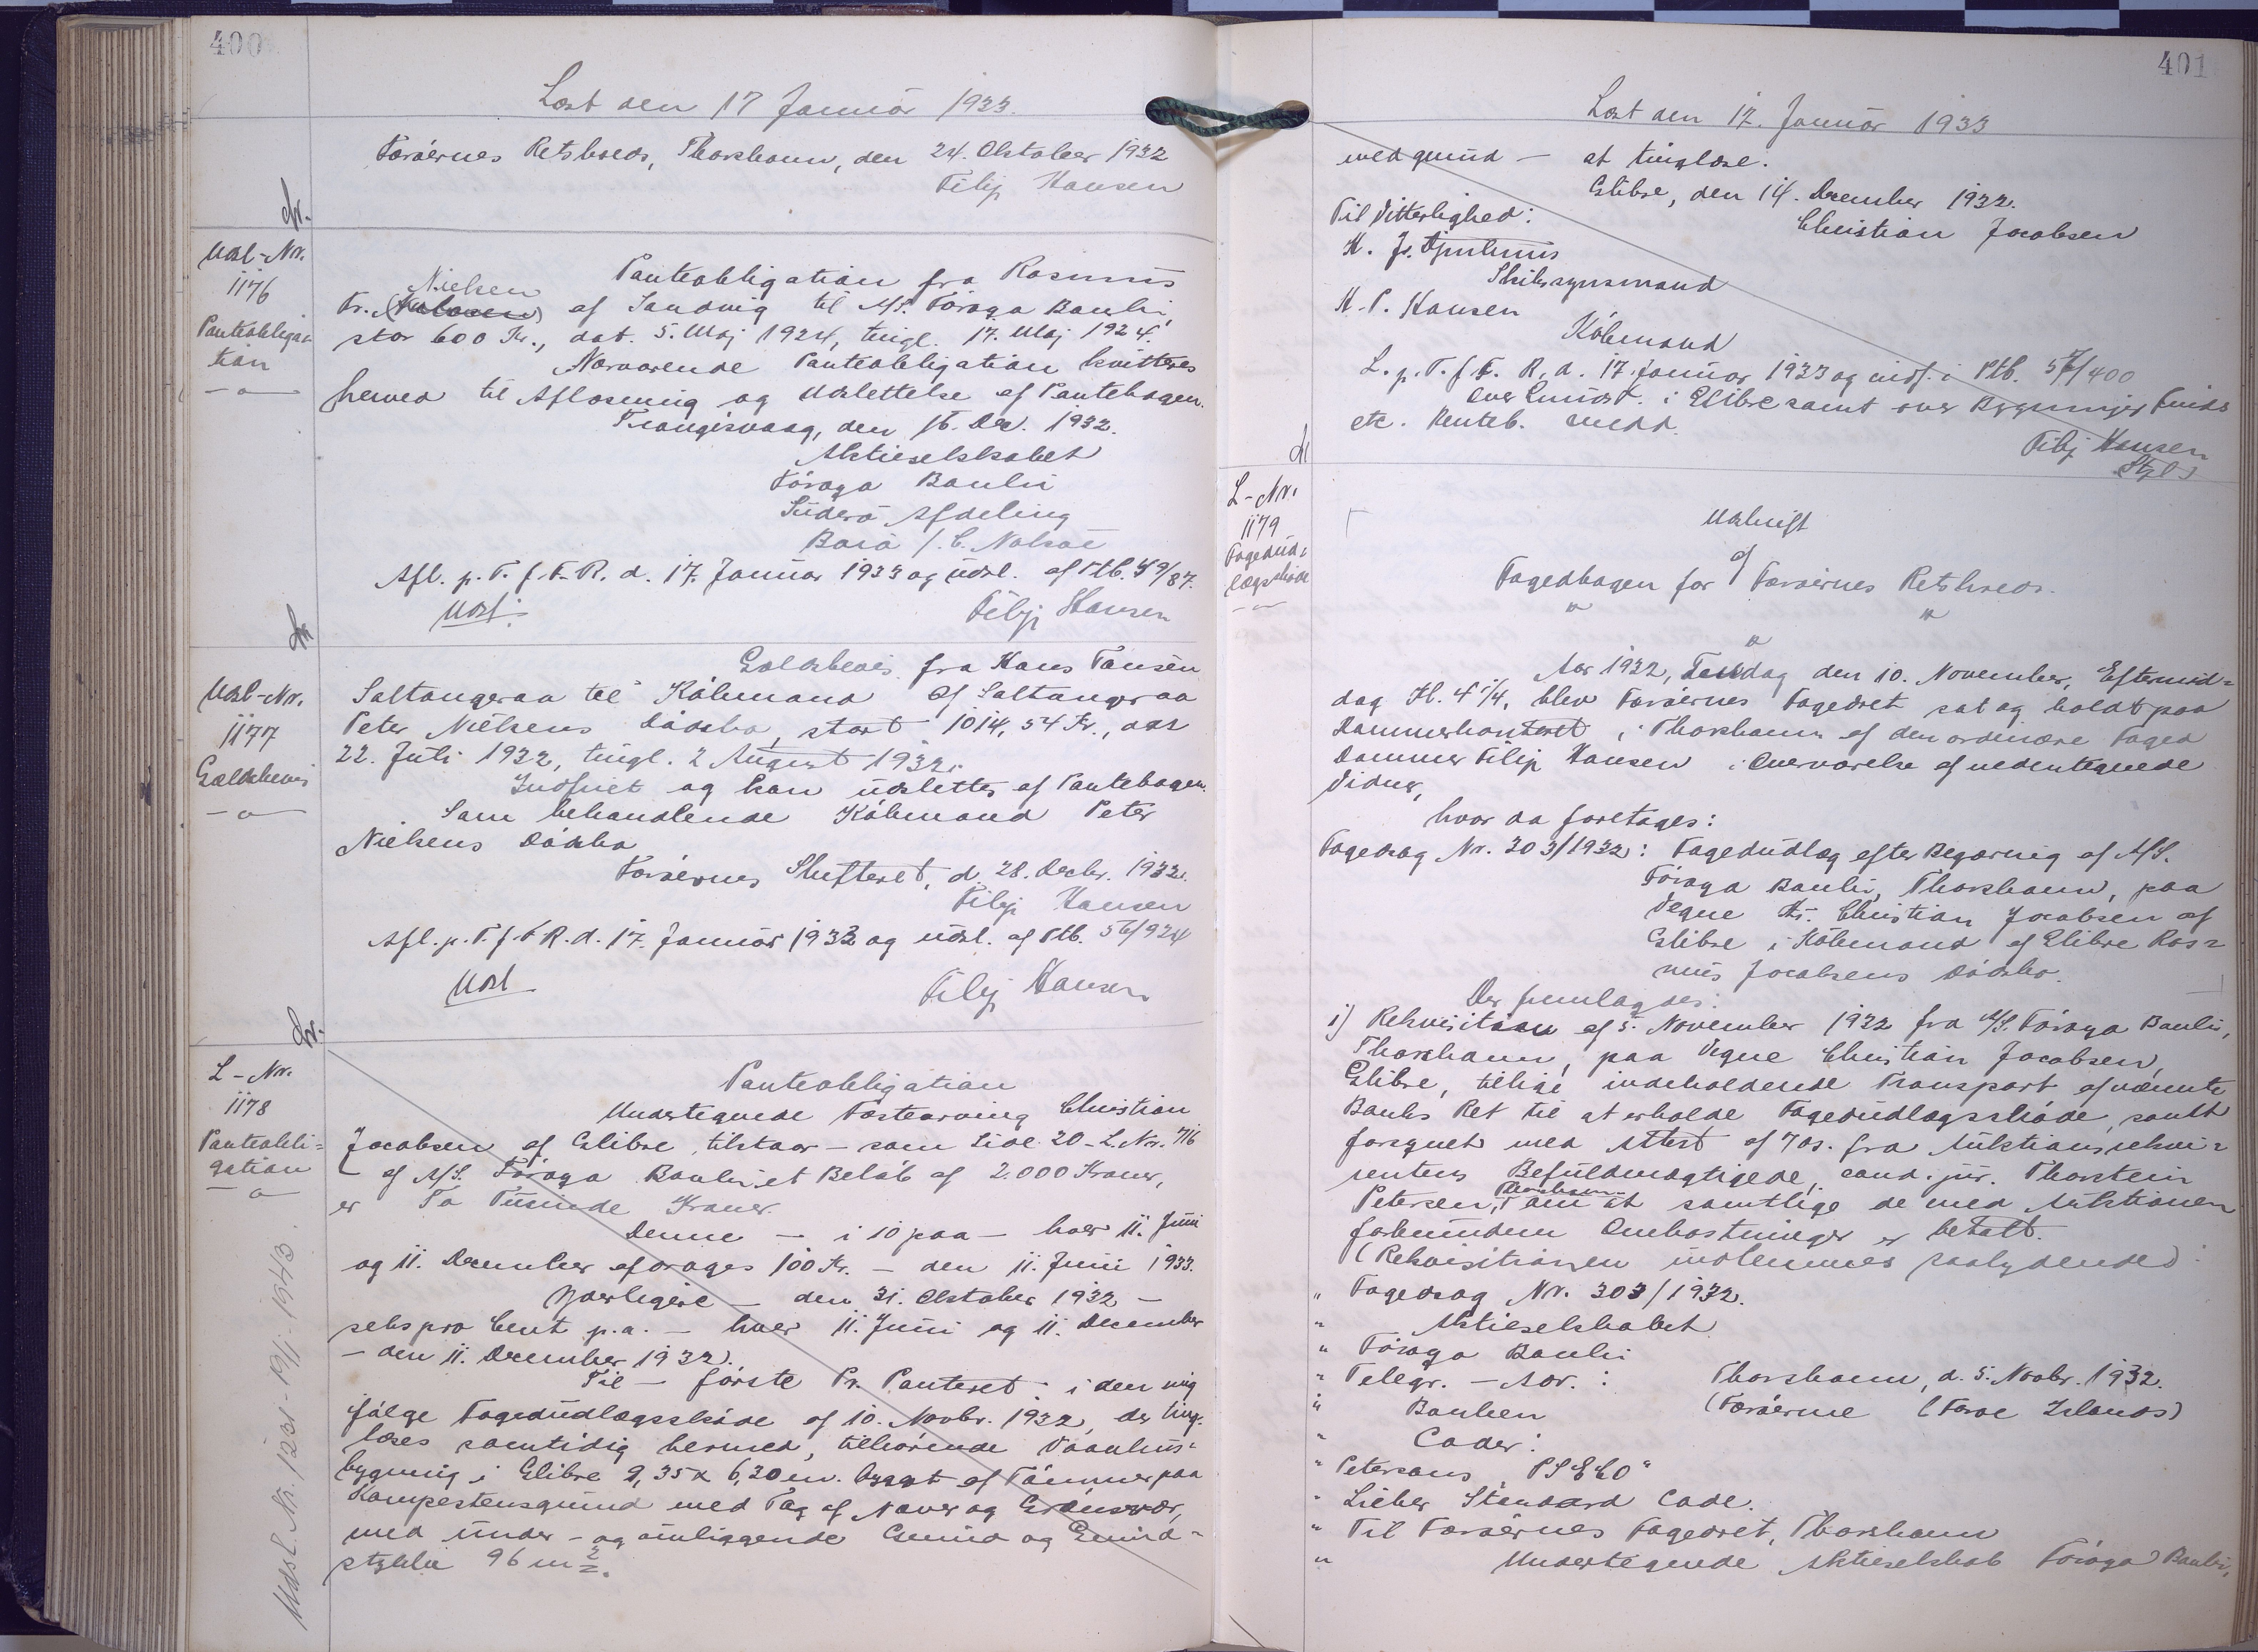 400
Læst den 17 Januar 1933.
Færøernes Retskreds, Thorshavn, den 24. Oktober 1932
Filip Hansen
Udsl-Nr.
1176
Panteobliga=
tion
Panteobligation fra Rasmus
Nielsen
Fr. af Sandvig til A/S. Föroya Banki,
stor 600 Kr., dat. 5. Maj 1924, tingl. 17. Maj 1924.
Nærværende Panteobligation kvitteres
herved til Aflæsning og Udslettelse af Pantebogen.
Trangisvaag, den 16. Dec. 1932.
Aktieselskabet
Föroya Banki
Suderö Afdeling
Afl. p. T. f. F. R. d. 17. Januar 1933 og udsl. af Ptb. 49/87.
Udsl. Filip Hansen
Udsl-Nr.
1177
Gældsbevis
Gældsbevis fra Hans Tausen
Saltangeraa til Købmand af Saltangeraa
Peter Nielsens Dødsbo, stort 1014,54 Kr., dat
22. Juli 1932, tingl. 2 August 1932.
Indfriet og kan udslettes af Pantebogen.
Som behandlende Købmand Peter
Nielsens Dødsbo
Færøernes Skifteret, d. 28. Decbr. 1932.
Filip Hansen
Afl. p. T. f. F. R. d. 17. Januar 1933 og udsl. af Ptb. 56/924
Udsl Filip Hansen
L-Nr.
1178
Panteobli=
gation
Panteobligation
Undertegnede Fæstearving Christian
Jacobsen af Glibre, tilstaar - som Side 20 - L. Nr. 716
af A/S. Föroya Banki et Beløb af 2.000 Kroner,
er To Tusinde Kroner.
Denne - i 10 paa - hver 11. Juni
og 11. December afdrages 100 Kr. - den 11. Juni 1933.
Yderligere - den 31. Oktober 1932 -
seks pro Cent p.a. - hver 11. Juni og 11. December
- den 11. December 1932).
Til - første Pr. Panteret: i den mig
ifølge Fogedudlægsskøde af 10. Novbr. 1932, der ting-
læses samtidig hermed, tilhørende Vaanhus-
bygning i Glibre 9,35 x 6,30 m. bygget af Tømmer paa
Kampestensgrund med Tag af Næver og Grønsvær,
med under- og omliggende Grund og Grund-
stykke 96 m2.
Udsl. Nr. 1231 - 19/1-1943.
401
Læst den 17. Januar 1933
medgrund - at tinglæse.
Glibre, den 14. December 1932.
Til Vitterlighed: Christian Jacobsen
Skibssynsmand
H. P. Hansen
Købmand
L. p. T. f. F. R. d. 17. Januar 1933 og indf. i Ptb. 57/400
over Grundst. i Glibre samt over Bygninger Grund
etc. Renteb. medd.
Filip Hansen
L-Nr.
1179
Fogedud=
lægsskøde
Udskrift
af
Fogedbogen for Færøernes Retskreds.
Aar 1932, Torsdag den 10. November, Eftermid=
dag Kl. 4 1/4, blev Færøernes Fogedret sat og holdt paa
Dommerkontoret i Thorshavn af den ordinære Foged
Dommer Filip Hansen i Overværelse af nedentegnede
Vidner,
hvor da foretages:
Fogedsag Nr. 303/1932: Fogedudlæg efter Begæring af A/S.
Föroya Banki, Thorshavn, paa
Vegne Hr. Christian Jacobsen af
Glibre i Købmand af Glibre Ras=
mus Jacobsens Dødsbo.
Der fremlagdes:
1) Rekvisition af 5. November 1932 fra A/S. Föroya Banki,
Thorshavn, paa Vegne Christian Jacobsen,
Glibre, tillige indeholdende Transport af nævnte
Banks Ret til at erholde Fogedudlægsskøde, samt
forsynet med Attest af 7 ds. fra Auktionsrekvi=
rentens Befuldmægtigede, cand. jur. Thorstein
Thorshavn
Petersen, om at samtlige de med Auktionen
forbundene Omkostninger er betalt.
(Rekvisitionen indlemmes saalydende):
" Fogedsag Nr. 303/1932.
" Aktieselskabet
" Föroya Banki
" Telegr. - Adr.: Thorshavn, d. 5. Novbr. 1932.
" Banken (Færøerne (Faroe Islands)
" Codes:
" Petersons "
" Lieber Standard Code.
" Til Færøernes Fogedret, Thorshavn
" Undertegnede Aktieselskab Föroya Banki,